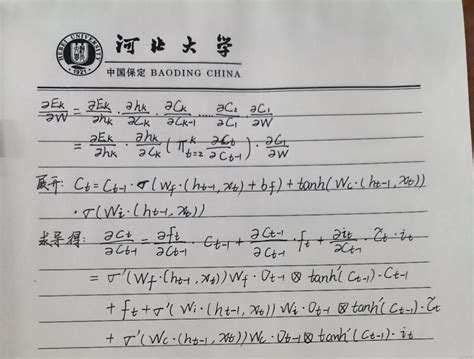 HEBEI UNIVERSITY
1921
河北大学
中国保定 BAODING CHINA
∂Ek/∂W = ∂Ek/∂hk · ∂hk/∂Ck · ∂Ck/∂Ck-1 ····· ∂C2/∂C1 · ∂C1/∂W
= ∂Ek/∂hk · ∂hk/∂Ck (π^k_t=2 ∂Ct/∂Ct-1) · ∂C1/∂W
展开: Ct = Ct-1 · σ(Wf·(ht-1, xt) + bf) + tanh(Wc·(ht-1, xt))
· σ(Wi·(ht-1, xt))
求导得: ∂Ct/∂Ct-1 = ∂ft/∂Ct-1 · Ct-1 + ∂Ct-1/∂Ct-1 · ft + ∂it/∂Ct-1 · c̃t · it
= σ'(Wf·(ht-1, xt))Wf · Ot-1 ⊗ tanh'(Ct-1) · Ct-1
+ ft + σ'(Wi·(ht-1, xt))Wi · Ot-1 ⊗ tanh'(Ct-1) · c̃t
+ σ'(Wc·(ht-1, xt))Wc · Ot-1 ⊗ tanh'(Ct-1) · it